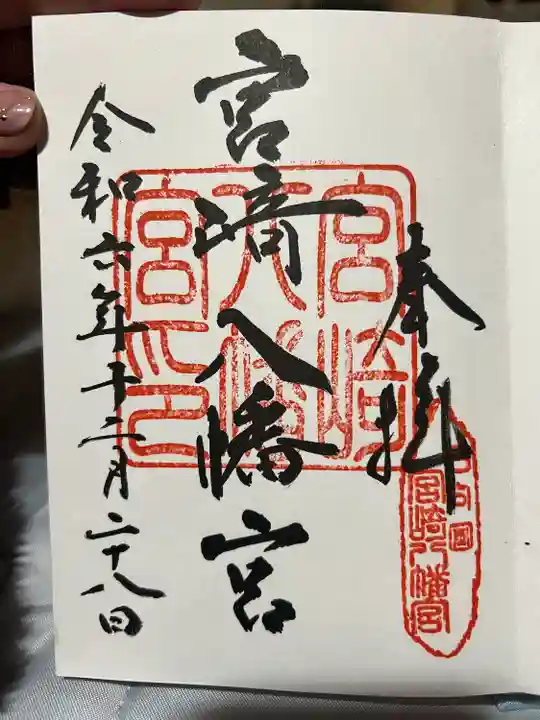 奉拝
宮崎八幡宮
令和六年十二月二十八日
宮崎
八幡
宮印
日向国
宮崎八幡宮